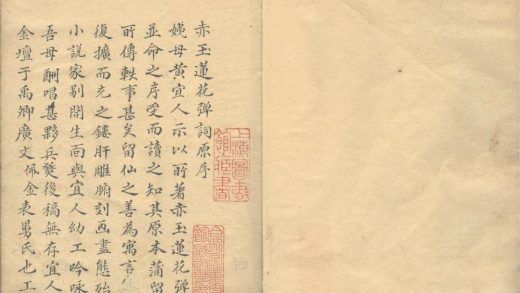 赤玉蓮花彈詞原序
姨母黃宜人示以所著赤玉蓮花彈
並命之序受而讀之知其原本蒲留
所傳軼事甚矣留仙之善為寓言
復擴而充之鏤肝雕腑刻畫盡態殆
小說家別開生面與宜人幼工吟咏
吾母酬唱甚夥兵燹後稿無存宜人
金壇于禹卿廣文佩金表男氏也工
上海圖書
館藏書